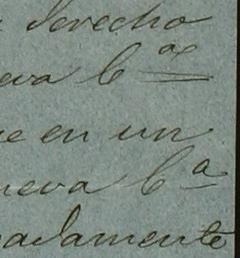 derecho
eva C.ªˢ
e en un
ueva C.ª
adamente